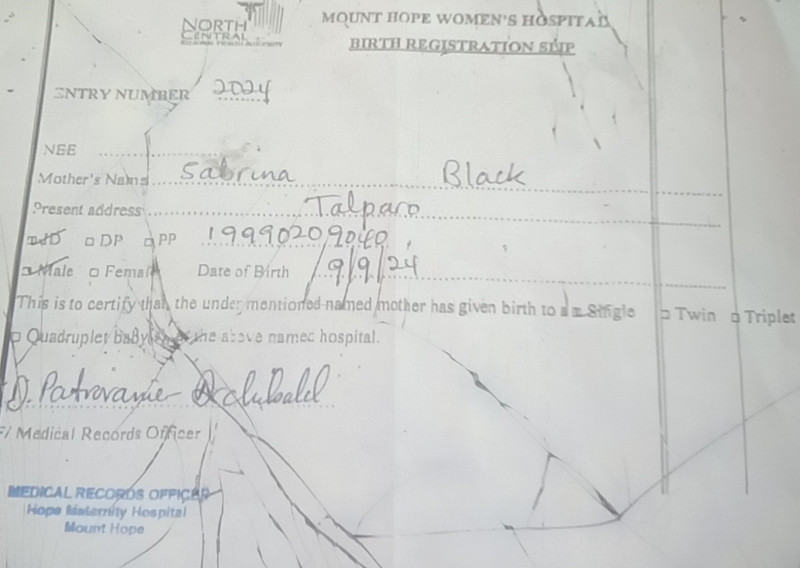 NORTH
CENTRAL
REGIONAL HEALTH AUTHORITY
MOUNT HOPE WOMEN'S HOSPITAL
BIRTH REGISTRATION SLIP
ENTRY NUMBER 2024
NEE
Mother's Name Sabrina Black
Present address Talparo
ID DP PP 19990209040
Male Female Date of Birth 9/9/24
This is to certify that, the under mentioned named mother has given birth to a Single Twin Triplet
Quadruplet baby the above named hospital.
Archibald
F/ Medical Records Officer
MEDICAL RECORDS OFFICER
Hope Maternity Hospital
Mount Hope